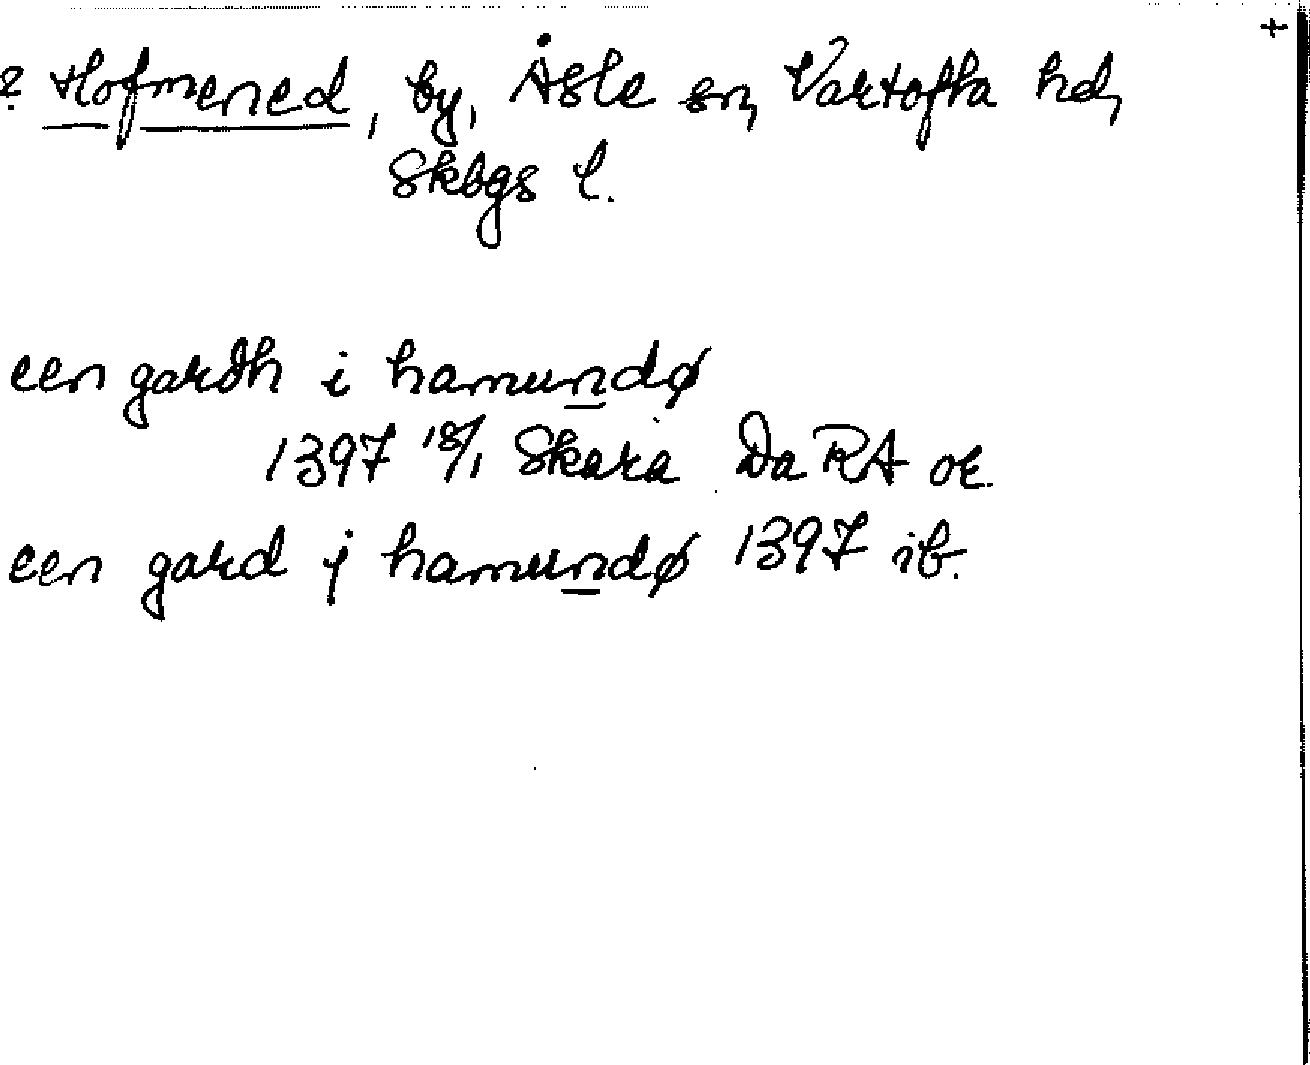 +
? Hofmened, by, Åsle sn, Vartofta hd,
Skbgs l.
een gardh i hamundø
1397 18/1 Skara DaRA or.
een gard j hamundø 1397 ib.